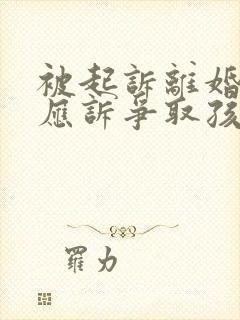 被起訴離婚
應訴爭取孩
羅力